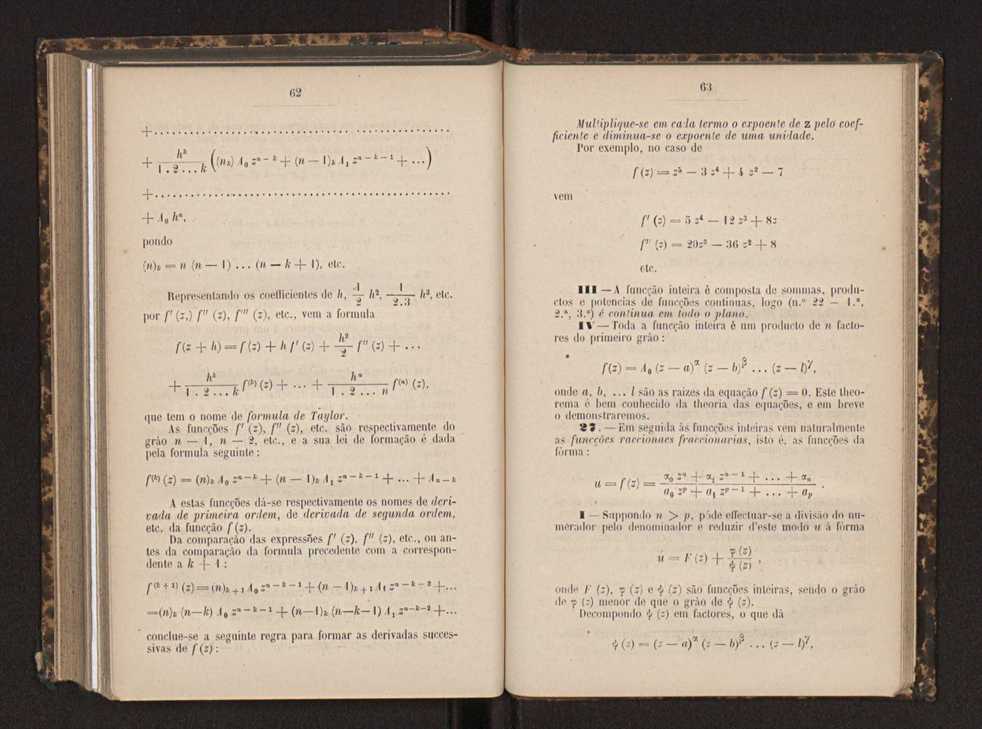 62
+. . . . . . . . . . . . . . . . . . . . . . . . . . . . . . . . . . . .
+ h^k / 1 . 2 . . . k ((n_k) A_0 z^{n-k} + (n — 1)_k A_1 z^{n-k-1} + . . .)
+. . . . . . . . . . . . . . . . . . . . . . . . . . . . . . . . . . . .
+ A_0 h^n,
pondo
(n)_k = n (n — 1) . . . (n — k + 1), etc.
Representando os coefficientes de h, 1/2 h², 1/2.3 h³, etc.
por f' (z,) f'' (z), f''' (z), etc., vem a formula
f(z + h) = f (z) + h f' (z) + h²/2 f'' (z) + . . .
+ h^k / 1 . 2 . . . k f^{(k)} (z) + . . . + h^n / 1 . 2 . . . n f^{(n)} (z),
que tem o nome de formula de Taylor.
As funcções f' (z), f'' (z), etc. são respectivamente do
gráo n — 1, n — 2, etc., e a sua lei de formação é dada
pela formula seguinte :
f^{(k)} (z) = (n)_k A_0 z^{n-k} + (n — 1)_k A_1 z^{n-k-1} + . . . + A_{n-k}
A estas funcções dá-se respectivamente os nomes de deri-
vada de primeira ordem, de derivada de segunda ordem,
etc. da funcção f (z).
Da comparação das expressões f' (z), f'' (z), etc., ou an-
tes da comparação da formula precedente com a correspon-
dente a k + 1 :
f^{(k+1)} (z) = (n)_{k+1} A_0 z^{n-k-1} + (n — 1)_{k+1} A_1 z^{n-k-2} + . . .
=(n)_k (n—k) A_0 z^{n-k-1} + (n—1)_k (n—k—1) A_1 z^{n-k-2} + . . .
conclue-se a seguinte regra para formar as derivadas succes-
sivas de f (z) :
63
Multiplique-se em cada termo o expoente de z pelo coef-
ficiente e diminua-se o expoente de uma unidade.
Por exemplo, no caso de
f (z) = z⁵ — 3 z⁴ + 4 z² — 7
vem
f' (z) = 5 z⁴ — 12 z³ + 8z
f'' (z) = 20z³ — 36 z² + 8
etc.
III — A funcção inteira é composta de sommas, produ-
ctos e potencias de funcções continuas, logo (n.º 22 — 1.º,
2.º, 3.º) é continua em todo o plano.
IV — Toda a funcção inteira é um producto de n facto-
res do primeiro gráo :
f(z) = A_0 (z — a)^α (z — b)^β . . . (z — l)^γ,
onde a, b, . . . l são as raizes da equação f (z) = 0. Este theo-
rema é bem conhecido da theoria das equações, e em breve
o demonstraremos.
27. — Em seguida ás funcções inteiras vem naturalmente
as funcções raccionaes fraccionarias, isto é, as funcções da
fórma :
u = f (z) = α_0 z^n + α_1 z^{n-1} + . . . + α_n / a_0 z^p + a_1 z^{p-1} + . . . + a_p .
I — Suppondo n > p, póde effectuar-se a divisão do nu-
merador pelo denominador e reduzir d'este modo u á fórma
u = F (z) + φ (z) / ψ (z) ,
onde F (z), φ (z) e ψ (z) são funcções inteiras, sendo o gráo
de φ (z) menor de que o gráo de ψ (z).
Decompondo ψ (z) em factores, o que dá
ψ (z) = (z — a)^α (z — b)^β . . . (z — l)^γ,